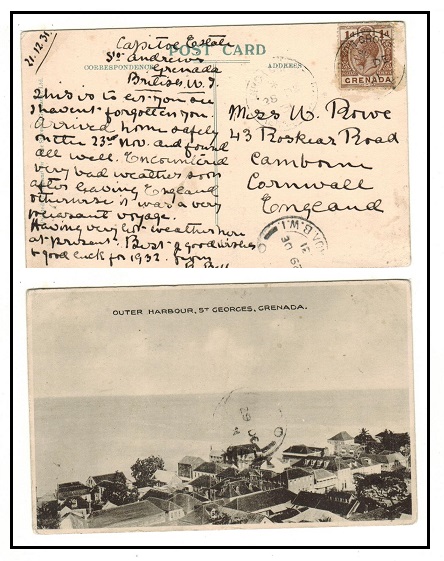 21.12.31
Capitol Estate
St. Andrews
Grenada
British W.I.
POST CARD
CORRESPONDENCE
ADDRESS
This is to let you see
I haven't forgotten you.
Arrived home safely
on the 23rd Nov. and found
all well. Encountered
very bad weather soon
after leaving England
otherwise it was a very
pleasant voyage.
Having very hot weather here
at present. Best & good wishes
& good luck for 1932. from
Miss W. Rowe
43 Roskear Road
Camborne
Cornwall
England
1d 1d
GRENADA
B.W.I.
OUTER HARBOUR, ST GEORGES, GRENADA.